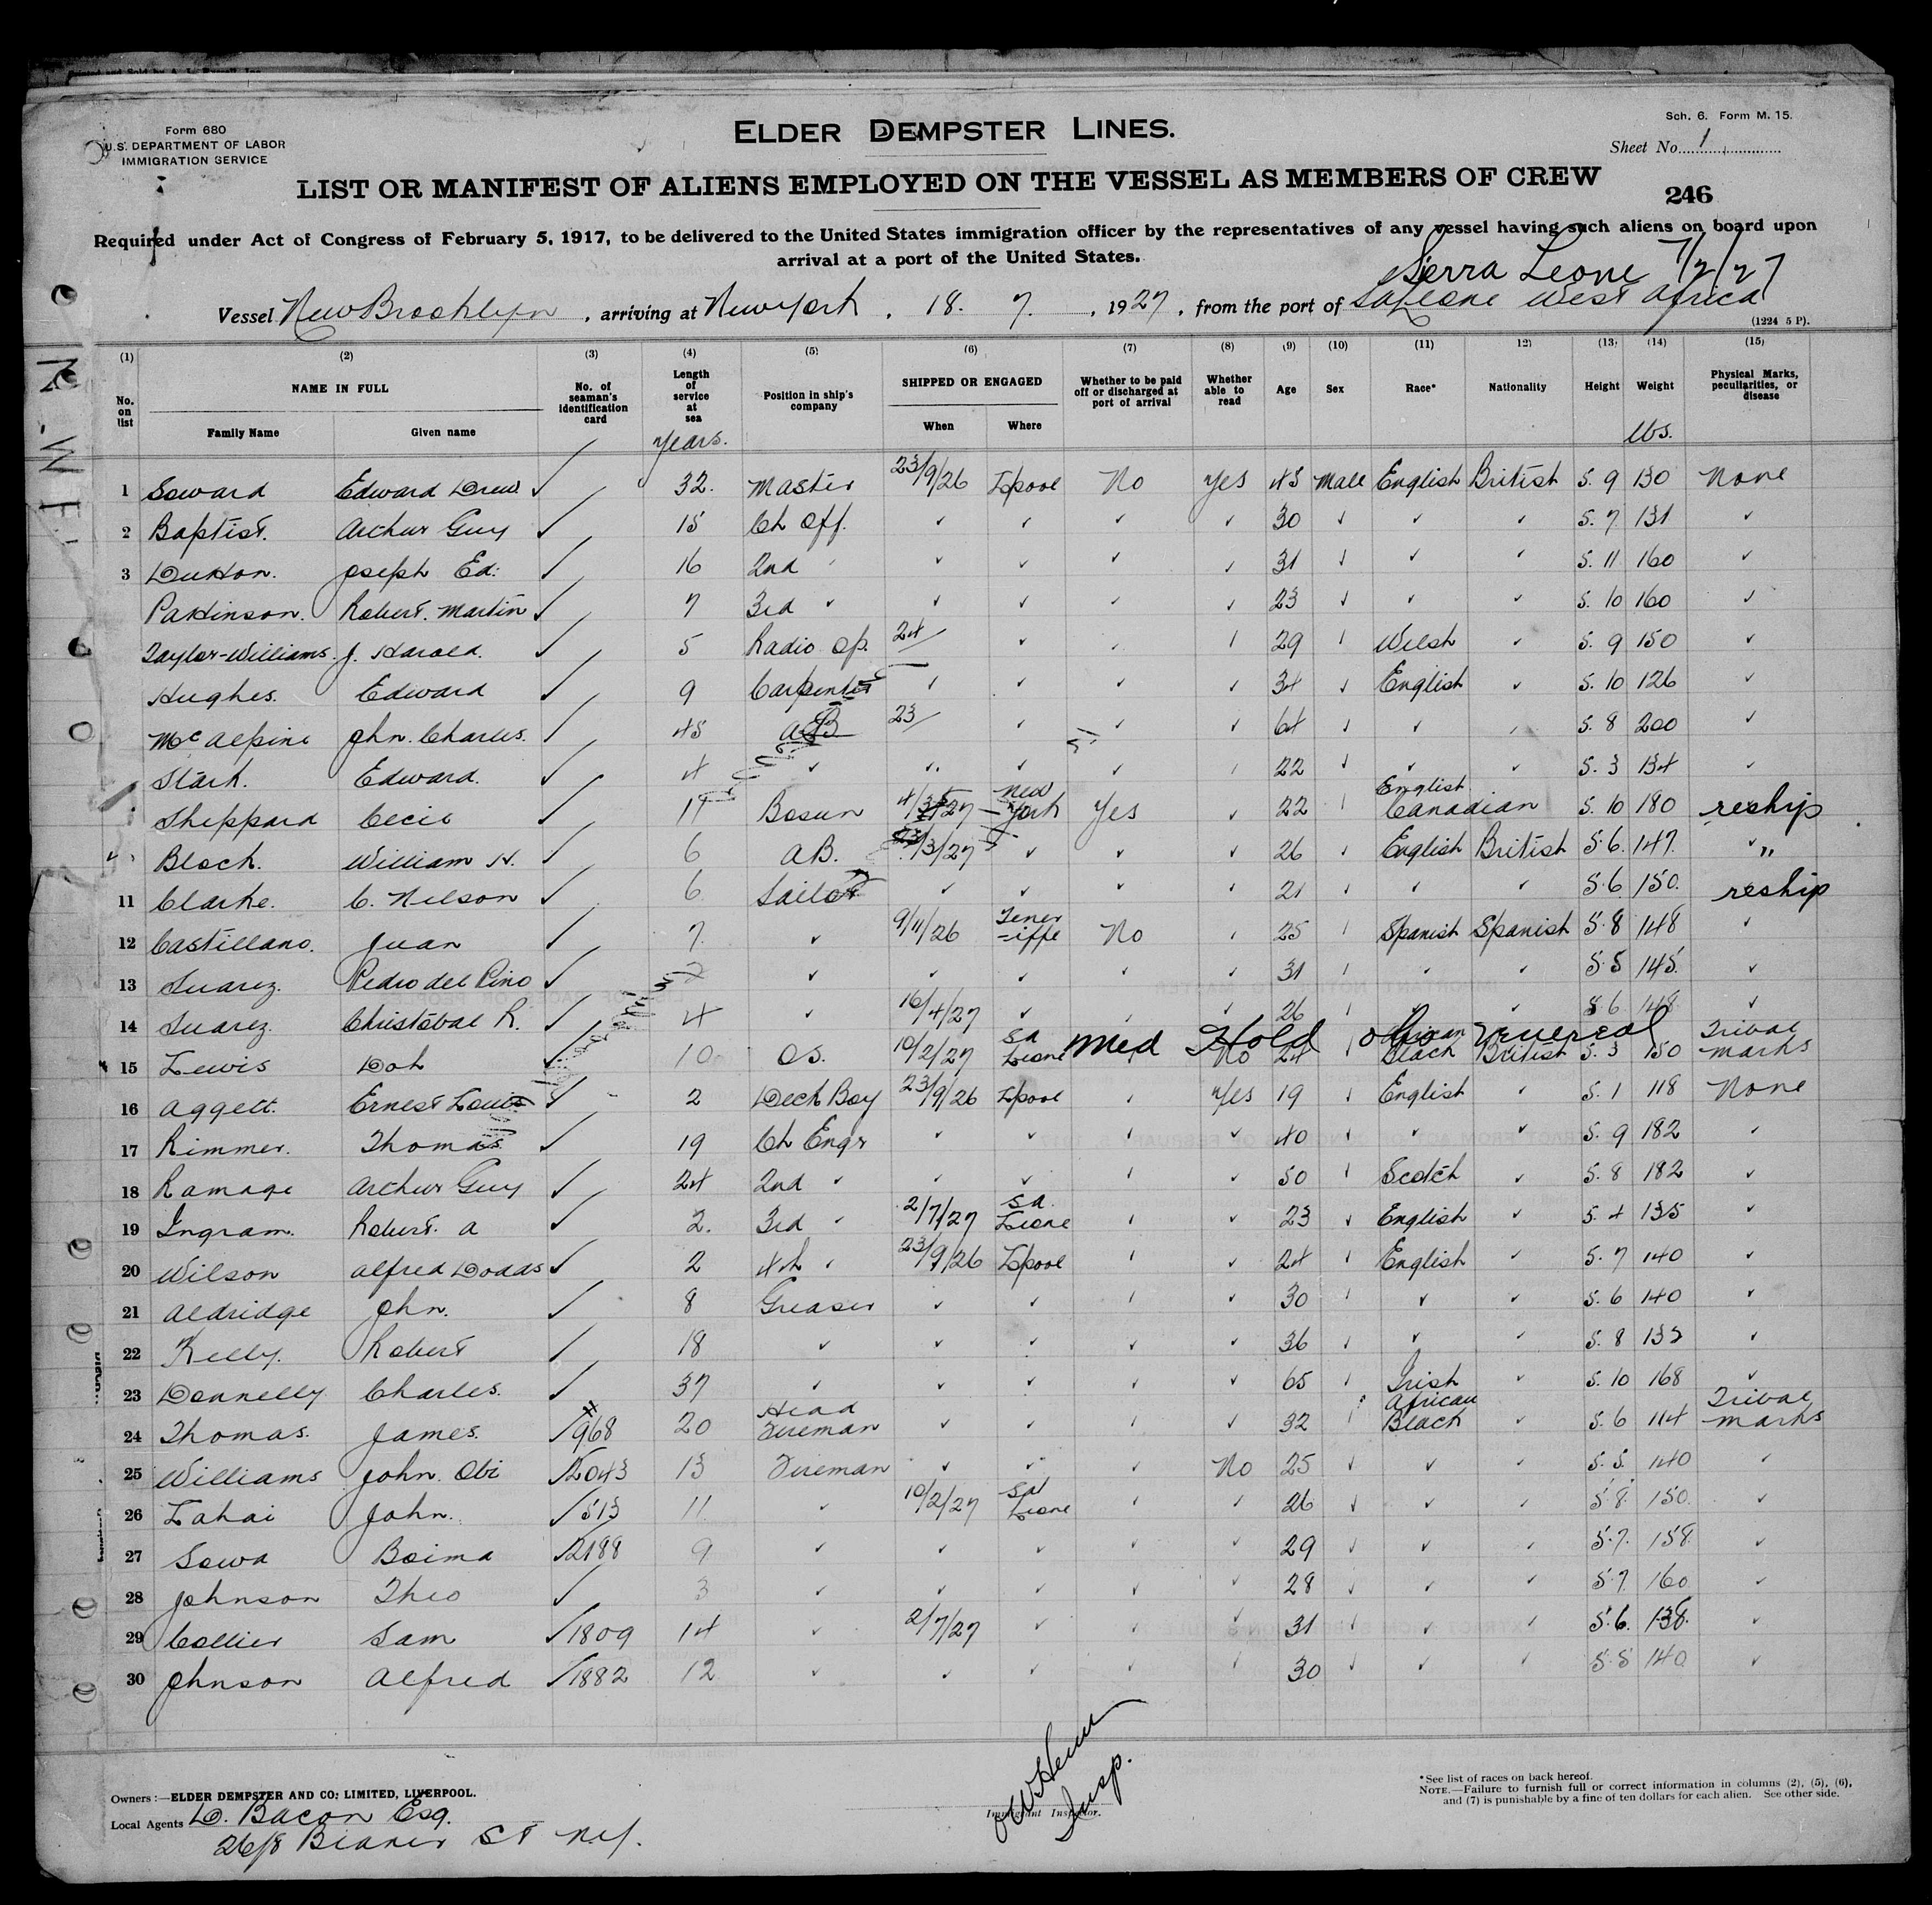 Form 680
U.S. DEPARTMENT OF LABOR
IMMIGRATION SERVICE
ELDER DEMPSTER LINES.
Sch. 6. Form M. 15.
Sheet No. 1
LIST OR MANIFEST OF ALIENS EMPLOYED ON THE VESSEL AS MEMBERS OF CREW
246
Required under Act of Congress of February 5, 1917, to be delivered to the United States immigration officer by the representatives of any vessel having such aliens on board upon
arrival at a port of the United States.
Sierra Leone 7/2/27
Vessel New Brooklyn, arriving at New York, 18. 7., 1927, from the port of Sa Leone West Africa
(1224 5 P).
(1) (2) (3) (4) (5) (6) (7) (8) (9) (10) (11) 12) (13) (14) (15)
No. on list NAME IN FULL Family Name Given name No. of seaman's identification card Length of service at sea Position in ship's company SHIPPED OR ENGAGED When Where Whether to be paid off or discharged at port of arrival Whether able to read Age Sex Race* Nationality Height Weight Physical Marks, peculiarities, or disease
years. lbs.
1 Soward Edward Drew ✓ 32. Master 23/9/26 Lpool No Yes 45 Male English British 5. 9 130 None
2 Baptist. Arthur Guy ✓ 15 Ch Off. ✓ ✓ ✓ ✓ 30 ✓ ✓ ✓ 5. 7 131 ✓
3 Dutton. Joseph Ed: ✓ 16 2nd ✓ ✓ ✓ ✓ ✓ 31 ✓ ✓ ✓ 5. 11 160 ✓
Parkinson. Robert. Martin ✓ 7 3rd ✓ ✓ ✓ ✓ ✓ 23 ✓ ✓ ✓ 5. 10 160 ✓
Taylor-Williams. J. Harold. ✓ 5 Radio Op. 24/ ✓ ✓ ✓ 29 ✓ Welsh ✓ 5. 9 150 ✓
Hughes. Edward ✓ 9 Carpenter ✓ ✓ ✓ ✓ 34 ✓ English ✓ 5. 10 126 ✓
McAlpine John. Charles. ✓ 45 AB 23/ ✓ ✓ ✓ 64 ✓ ✓ ✓ 5. 8 200 ✓
Stark. Edward. ✓ 4 ✓ ✓ ✓ ✓ ✓ 22 ✓ ✓ ✓ 5. 3 134 ✓
Sheppard Cecil ✓ Bosun New York Yes ✓ 22 ✓ English Canadian 5. 10 180 reship
Block. William H. ✓ 6 AB. /3/27 ✓ ✓ ✓ 26 ✓ English British 5.6. 147. ✓ "
11 Clarke. C. Nelson ✓ 6 Sailor ✓ ✓ ✓ ✓ 21 ✓ ✓ ✓ 5.6. 150. reship
12 Castillano. Juan ✓ 7. ✓ 9/11/26 Tener=iffe No ✓ 25 ✓ Spanish Spanish 5.8 148 ✓
13 Suarez. Pedro del Pino ✓ 2 ✓ ✓ ✓ ✓ ✓ 31 ✓ ✓ ✓ 5.5 145. ✓
14 Suarez. Christobal R. ✓ 4 ✓ 16/4/27 ✓ ✓ ✓ 26 ✓ ✓ ✓ 5.6 148 ✓
Med Hold venereal
15 Lewis Doh ✓ 10 OS. 10/2/27 Sa Leone ✓ No 24 ✓ African Black British 5. 3 150 Tribal marks
16 Aggett. Ernest Louis ✓ 2 Deck Boy 23/9/26 Lpool ✓ Yes 19 ✓ English ✓ 5. 1 118 None
17 Rimmer. Thomas ✓ 19 Ch Engr ✓ ✓ ✓ ✓ 40 ✓ ✓ ✓ 5. 9 182 ✓
18 Ramage Arthur Guy ✓ 24 2nd ✓ ✓ ✓ ✓ ✓ 50 ✓ Scotch ✓ 5. 8 182 ✓
19 Ingram. Robert. A ✓ 2. 3rd ✓ 2/7/27 Sa. Leone ✓ ✓ 23 ✓ English ✓ 5. 4 135 ✓
20 Wilson Alfred Dodds ✓ 2 4th ✓ 23/9/26 Lpool ✓ ✓ 24 ✓ English ✓ 5. 7 140 ✓
21 Aldridge John. ✓ 8 Greaser ✓ ✓ ✓ ✓ 30 ✓ ✓ ✓ 5. 6 140 ✓
22 Kelly. Robert ✓ 18 ✓ ✓ ✓ ✓ ✓ 36 ✓ ✓ ✓ 5. 8 135 ✓
23 Donnelly Charles. ✓ 37 ✓ ✓ ✓ ✓ ✓ 65 ✓ Irish ✓ 5. 10 168 ✓
24 Thomas. James. ✓ 968 20 Head Fireman ✓ ✓ ✓ ✓ 32 ✓ African Black ✓ 5. 6 114 Tribal marks
25 Williams John. Obi ✓ 2043 13 Fireman ✓ ✓ ✓ No 25 ✓ ✓ ✓ 5. 5. 140 ✓
26 Lahai John. ✓ 513 11 ✓ 10/2/27 Sa Leone ✓ ✓ 26 ✓ ✓ ✓ 5.8. 150. ✓
27 Sowa Boima ✓ 2188 9 ✓ ✓ ✓ ✓ ✓ 29 ✓ ✓ ✓ 5.7. 158. ✓
28 Johnson Theo ✓ 3 ✓ ✓ ✓ ✓ ✓ 28 ✓ ✓ ✓ 5.7. 160 ✓
29 Collier Sam ✓ 1809 14 ✓ 2/7/27 ✓ ✓ ✓ 31 ✓ ✓ ✓ 5.6. 138. ✓
30 Johnson Alfred ✓ 1882 12 ✓ ✓ ✓ ✓ ✓ 30 ✓ ✓ ✓ 5.5 140 ✓
Owners :—ELDER DEMPSTER AND CO; LIMITED, LIVERPOOL.
Local Agents D. Bacon Esq.
26/8 Beaver St N.Y.
Insp.
Immigrant Inspector.
*See list of races on back hereof.
NOTE.—Failure to furnish full or correct information in columns (2), (5), (6),
and (7) is punishable by a fine of ten dollars for each alien. See other side.